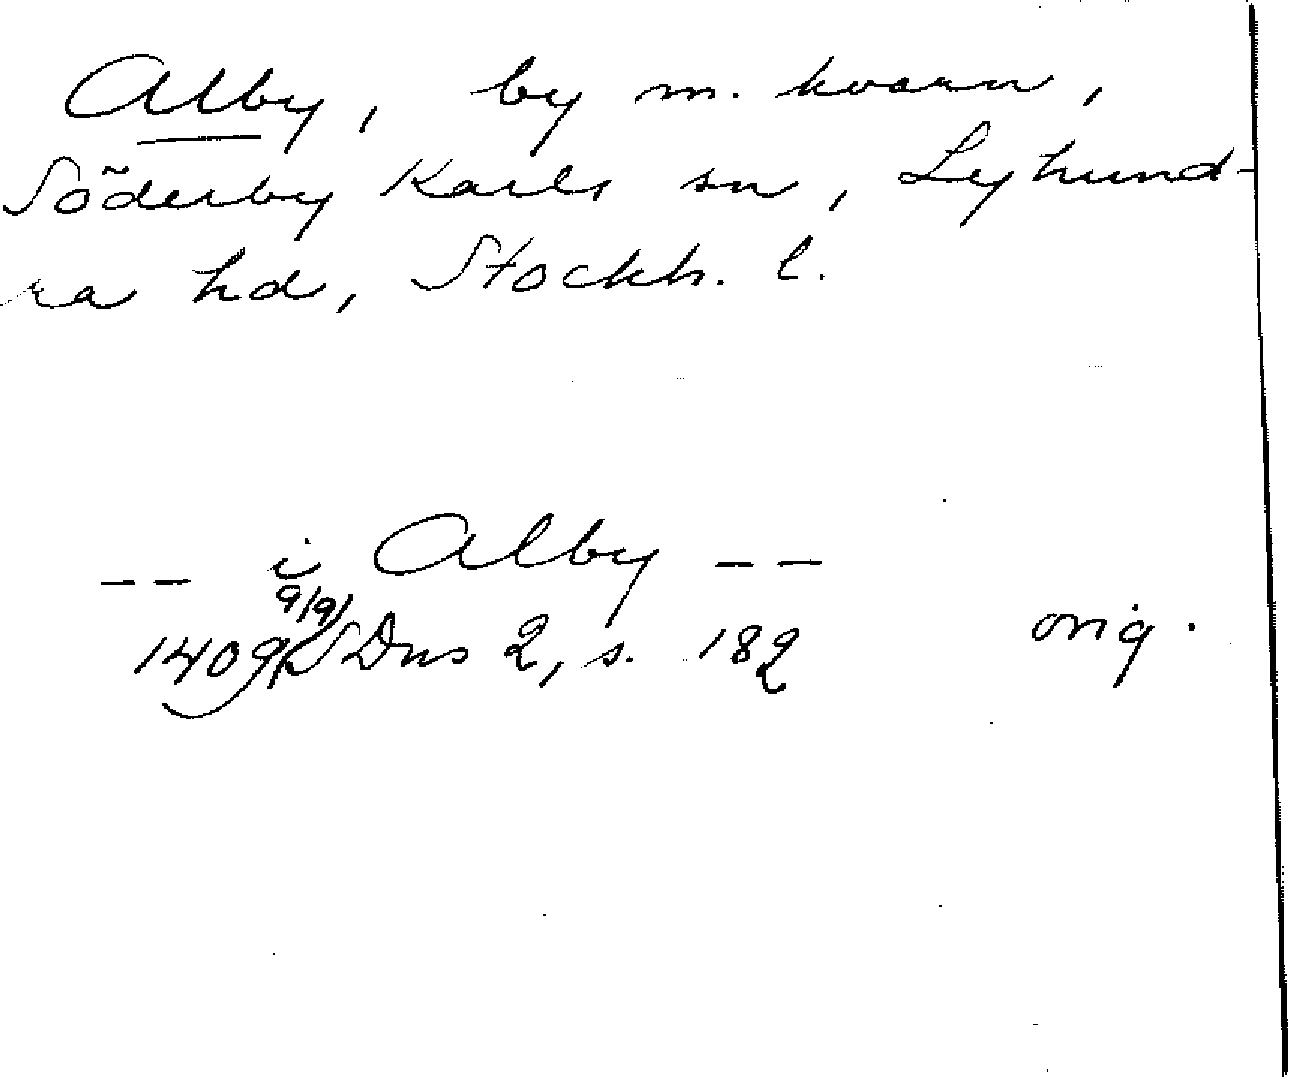 Alby, by m. kvarn,
Söderby Karls sn, Lyhund-
ra hd, Stockh. l.
-- i Alby --
1409 9/9 SDns 2, s. 182 orig.